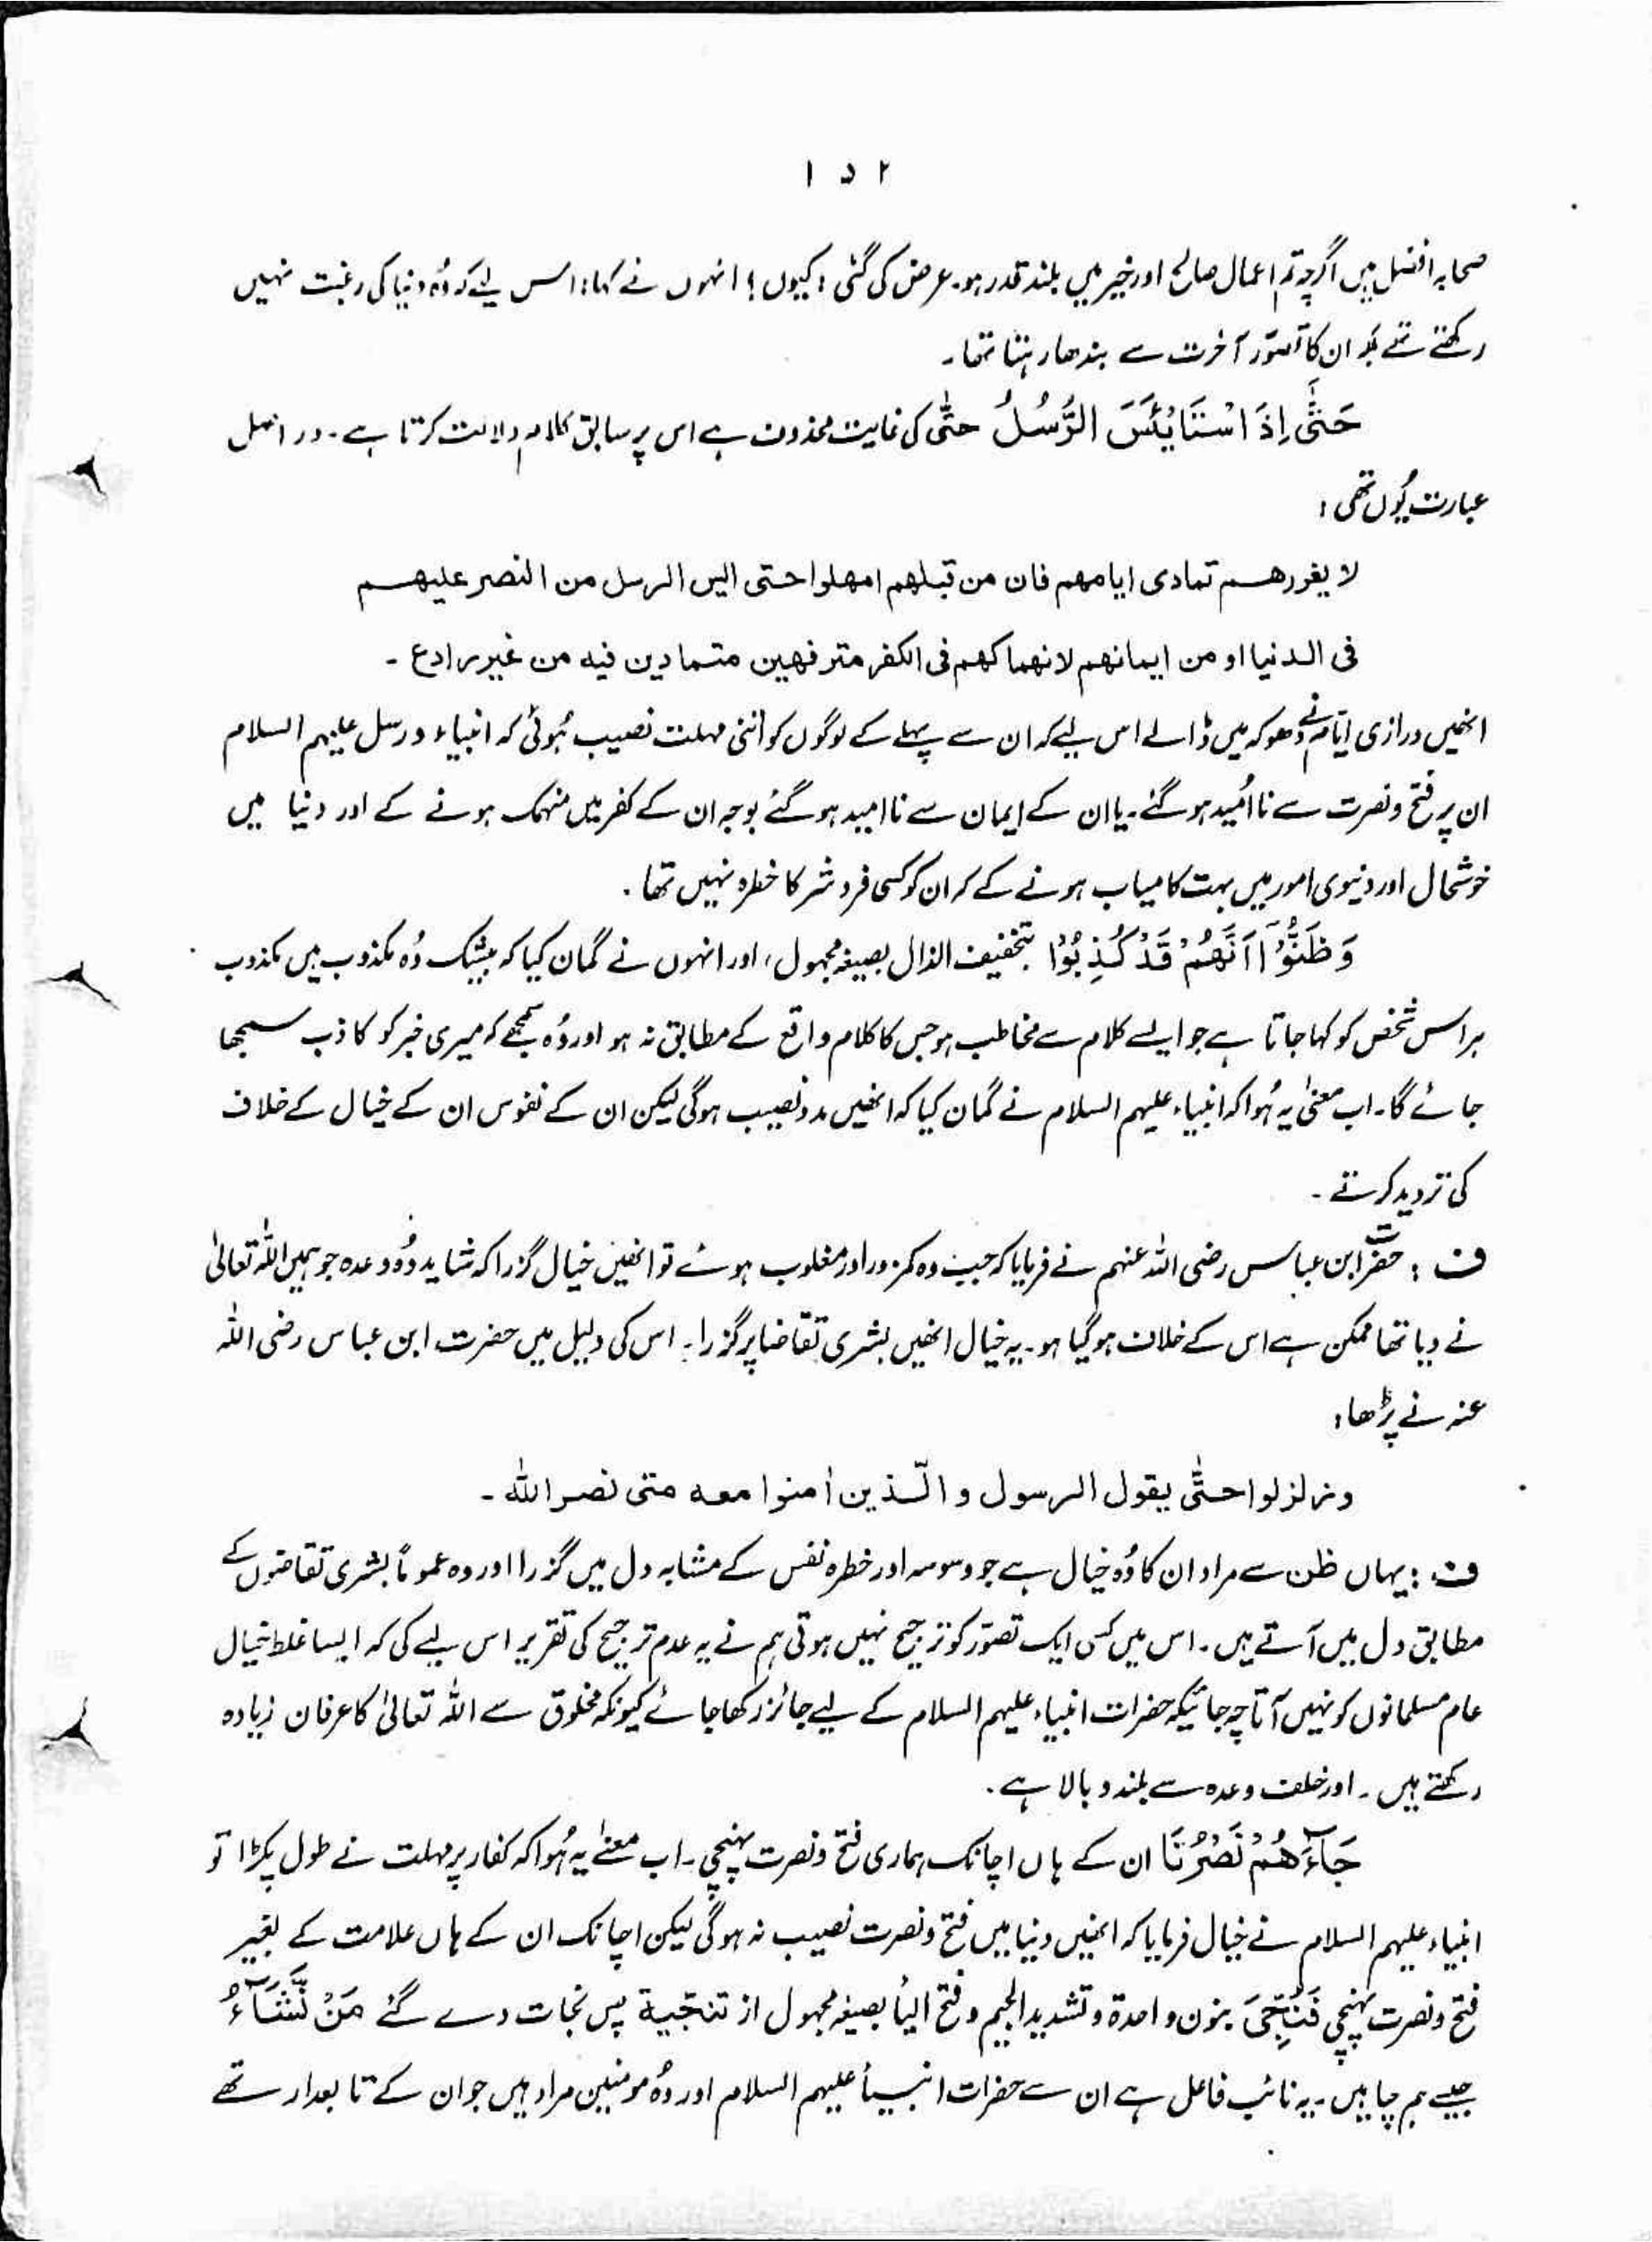 ۱۵۲
صحابہ افضل ہیں اگرچہ تم اعمال صالح اور خیر میں بلند قدر ہو۔ عرض کی گئی؛ کیوں؟ انہوں نے کہا: اس لیے کہ وُہ دنیا کی رغبت نہیں
رکھتے تھے بلکہ ان کا تصوّر آخرت سے بندھا رہتا تھا۔
حَتّٰۤی اِذَا اسْتَایْئَسَ الرُّسُلُ حتّٰی کی غایت محذوف ہے اس پر سابق کلام دلالت کرتا ہے۔ در اصل
عبارت یُوں تھی:
لا یغررهم تمادی ایامهم فان من قبلهم امهلوا حتی الیس الرسل من النصر علیهم
فی الدنیا او من ایمانهم لانهماکهم فی الکفر مترفهین متمادین فیه من غیر رادع۔
انھیں درازی ایّام نے دھوکہ میں ڈالے اس لیے کہ ان سے پہلے کے لوگوں کو اتنی مہلت نصیب ہُوئی کہ انبیاء و رسل علیہم السلام
ان پر فتح و نصرت سے نا اُمید ہو گئے۔ یا ان کے ایمان سے نا امید ہو گئے بوجہ ان کے کفر میں منہمک ہونے کے اور دنیا میں
خوشحال اور دنیوی امور میں بہت کامیاب ہونے کے کہ ان کو کسی فرد شر کا خطرہ نہیں تھا۔
وَظَنُّوْۤا اَنَّهُمْ قَدْ كُذِبُوْا بتخفیف الذال بصیغہ مجہول، اور انہوں نے گمان کیا کہ بیشک وُہ مکذوب ہیں مکذوب
ہر اس شخص کو کہا جاتا ہے جو ایسے کلام سے مخاطب ہو جس کا کلام واقع کے مطابق نہ ہو اور وُہ سمجھے کہ میری خبر کو کاذب سمجھا
جائے گا۔ اب معنیٰ یہ ہُوا کہ انبیاء علیہم السلام نے گمان کیا کہ انھیں مدد نصیب ہوگی لیکن ان کے نفوس ان کے خیال کے خلاف
کی تردید کرتے۔
ف : حضرت ابن عباس رضی اللہ عنہم نے فرمایا کہ جب وہ کمزور اور مغلوب ہوئے تو انھیں خیال گزرا کہ شاید وُہ وعدہ جو ہمیں اللہ تعالیٰ
نے دیا تھا ممکن ہے اس کے خلاف ہو گیا ہو۔ یہ خیال انھیں بشری تقاضا پر گزرا۔ اس کی دلیل میں حضرت ابن عباس رضی اللہ
عنہ نے پڑھا:
وزلزلوا حتّٰی یقول الرسول و الّذین اٰمنوا معه متی نصر اللہ۔
ف : یہاں ظن سے مراد ان کا وُہ خیال ہے جو وسوسہ اور خطرہ نفس کے مشابہ دل میں گزرا اور وہ عموماً بشری تقاضوں کے
مطابق دل میں آتے ہیں۔ اس میں کسی ایک تصوّر کو ترجیح نہیں ہوتی ہم نے یہ عدم ترجیح کی تقریر اس لیے کی کہ ایسا غلط خیال
عام مسلمانوں کو نہیں آتا چہ جائیکہ حضرات انبیاء علیہم السلام کے لیے جائز رکھا جائے کیونکہ مخلوق سے اللہ تعالیٰ کا عرفان زیادہ
رکھتے ہیں۔ اور خلف وعدہ سے بلند و بالا ہے۔
جَآءَهُمْ نَصْرُنَا ان کے ہاں اچانک ہماری فتح و نصرت پہنچی۔ اب معنیٰ یہ ہُوا کہ کفار پر مہلت نے طول پکڑا تو
انبیاء علیہم السلام نے خیال فرمایا کہ انھیں دنیا میں فتح و نصرت نصیب نہ ہوگی لیکن اچانک ان کے ہاں علامت کے بغیر
فتح و نصرت پہنچی فَنُجِّیَ بنون واحدۃ و تشدید الجیم و فتح الیأ بصیغہ مجہول از تنجیة پس نجات دے گئے مَنْ نَّشَآءُ
جسے ہم چاہیں۔ یہ نائب فاعل ہے ان سے حضرات انبیأ علیہم السلام اور وُہ مومنین مراد ہیں جو ان کے تابعدار تھے